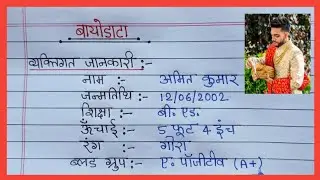 बायोडाटा
व्यक्तिगत जानकारी :-
नाम :- अमित कुमार
जन्मतिथि :- 12/06/2002
शिक्षा :- बी. एड.
ऊँचाई :- 5 फूट 4 इंच
रंग :- गोरा
ब्लड ग्रुप :- ए. पॉजीटीव (A+)